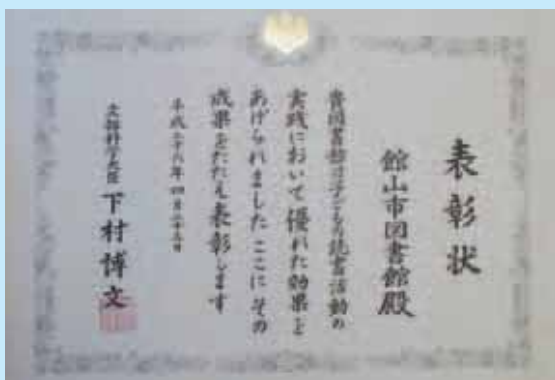 表彰状
館山市図書館殿
貴図書館は子どもの読書活動の
実践において優れた効果を
あげられました ここに その
成果をたたえ表彰します
平成二十六年四月二十三日
文部科学大臣 下村博文